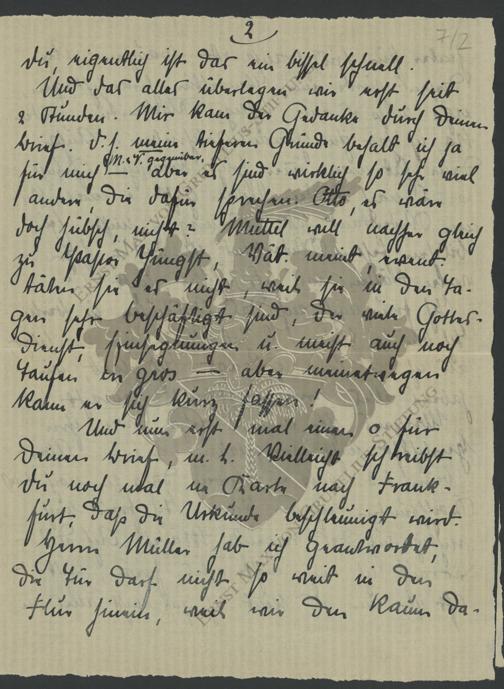 2
7/2
du, eigentlich ist das ein bissel schnell.
Und das alles überlegen wir erst seit
2 Stunden. Mir kam der Gedanke durch Deinen
Brief. D. h. meine tieferen Gründe behalt ich ja
für mich M. u. V. gegenüber, aber es sind wirklich so sehr viel
andere, die dafür sprechen. Otto, es wäre
doch hübsch, nicht? Muttel will nachher gleich
zu Pastor Jüngst, Vat. meint, event.
täten sie es nicht, weil sie in den Ta-
gen sehr beschäftigt sind, der viele Gottes-
dienst, Einsegnungen u. meist auch noch
Taufen en gros — aber meinetwegen
kann er sich kurz fassen!
Und nun erst mal einen o für
Deinen Brief, m. L. Vielleicht schreibst
du noch mal ne Karte nach Frank-
furt, daß die Urkunde beschleunigt wird.
Herrn Müller hab ich geantwortet,
die Tür darf nicht so weit in den
Flur hinein, weil wir den Raum da-